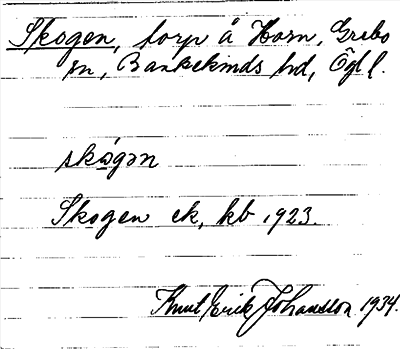 Skogen, torp å Horn, Grebo
sn, Bankekinds hd, Ögl.
skógən
Skogen ek, kb 1923.
Knut Erik Johansson 1934.